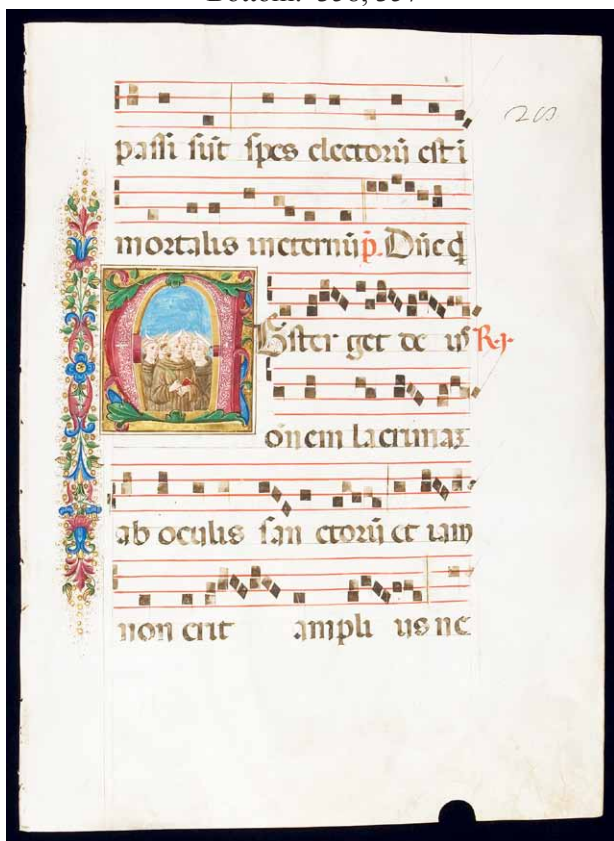 passi sūt spes electorū est ī
mortalis ineternū p̄. Dn̄e q̄
bster get de us R. j.
onem lacrimaꝫ
ab oculis san ctorū et iam
non erit ampli us ne